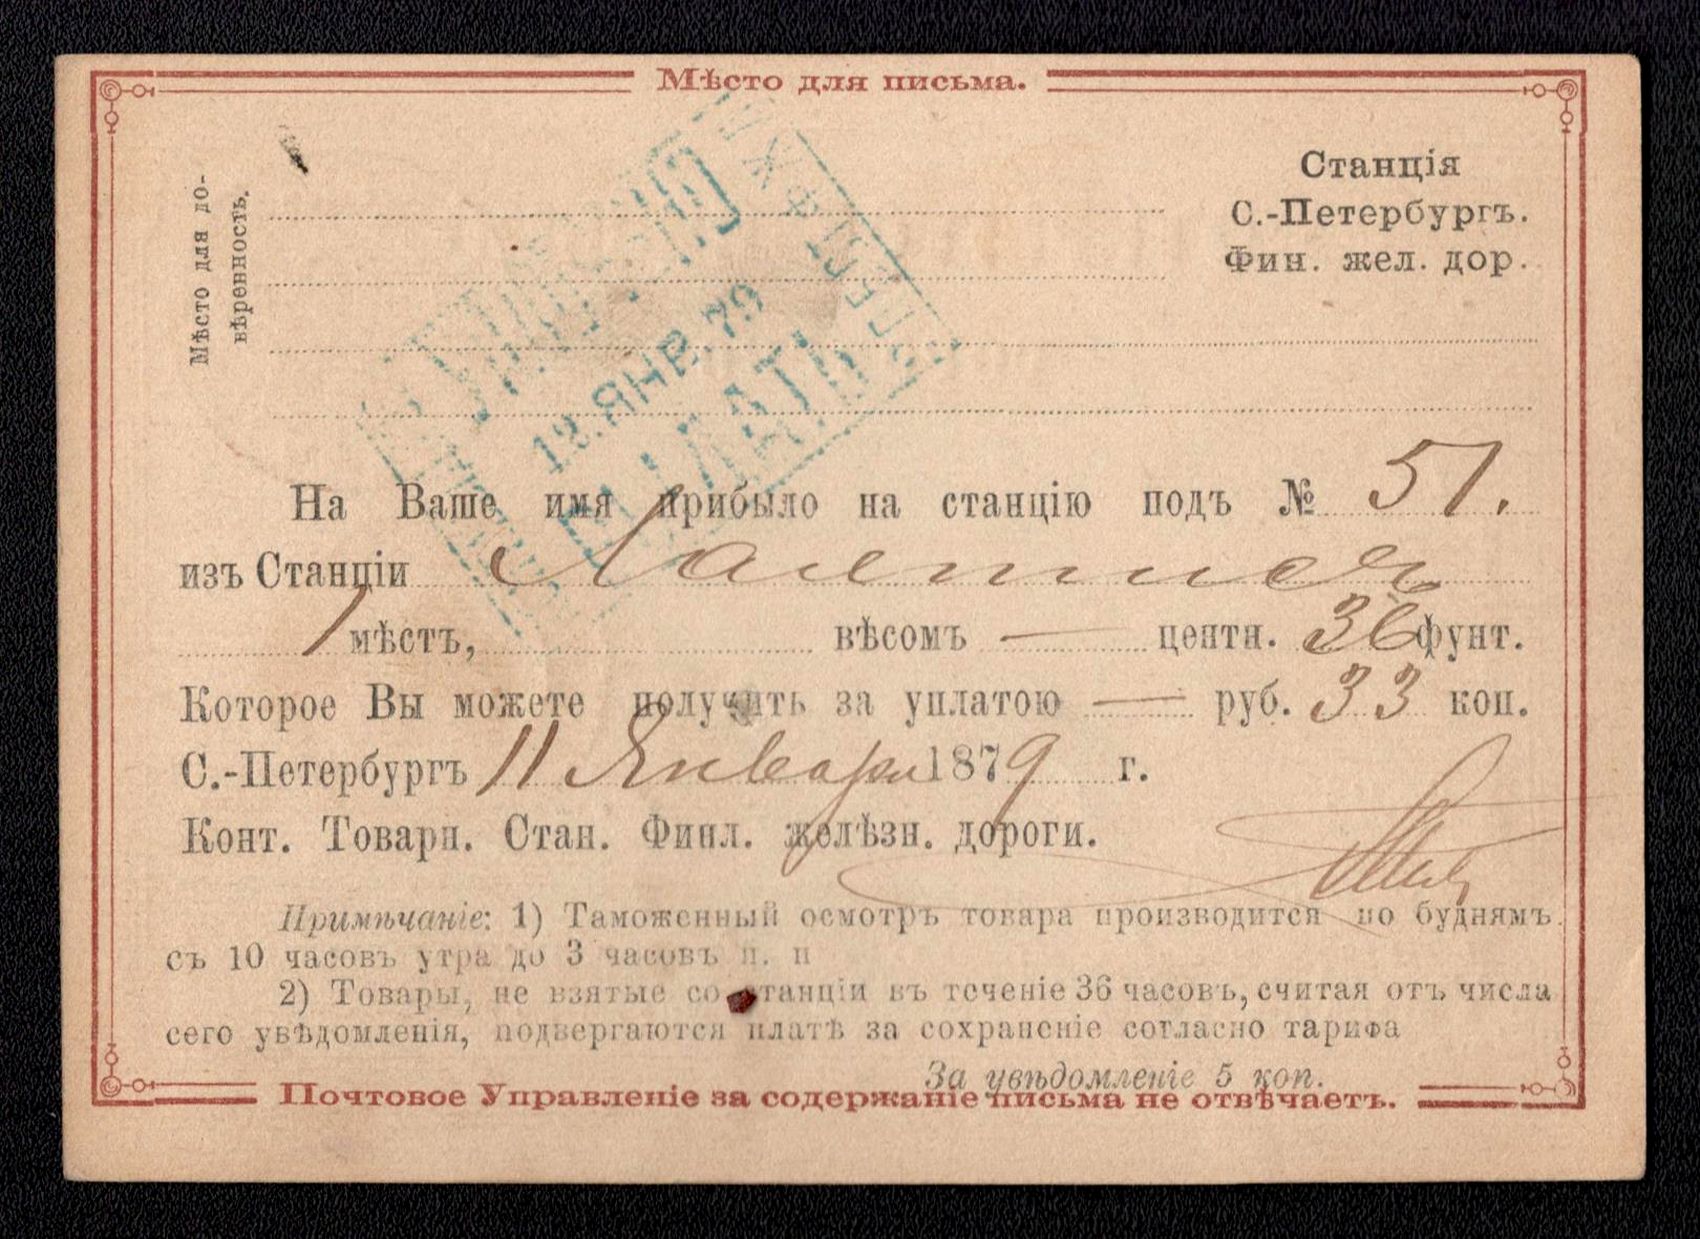 Мѣсто для письма.
Мѣсто для до-
вѣренность.
Станція
С.-Петербургъ.
Фин. жел. дор.
12. ЯНВ. 79
ПЛАТО
На Ваше имя прибыло на станцію подъ № 51.
изъ Станціи
1 мѣстъ, вѣсомъ — центн. 36 фунт.
Которое Вы можете получить за уплатою — руб. 33 коп.
С.-Петербургъ 11 Января 1879 г.
Конт. Товарн. Стан. Финл. желѣзн. дороги.
Примѣчаніе: 1) Таможенный осмотръ товара производится по буднямъ
съ 10 часовъ утра до 3 часовъ п. п
2) Товары, не взятые со станціи въ теченіе 36 часовъ, считая отъ числа
сего увѣдомленія, подвергаются платѣ за сохраненіе согласно тарифа
За увѣдомленіе 5 коп.
Почтовое Управленіе за содержаніе письма не отвѣчаетъ.